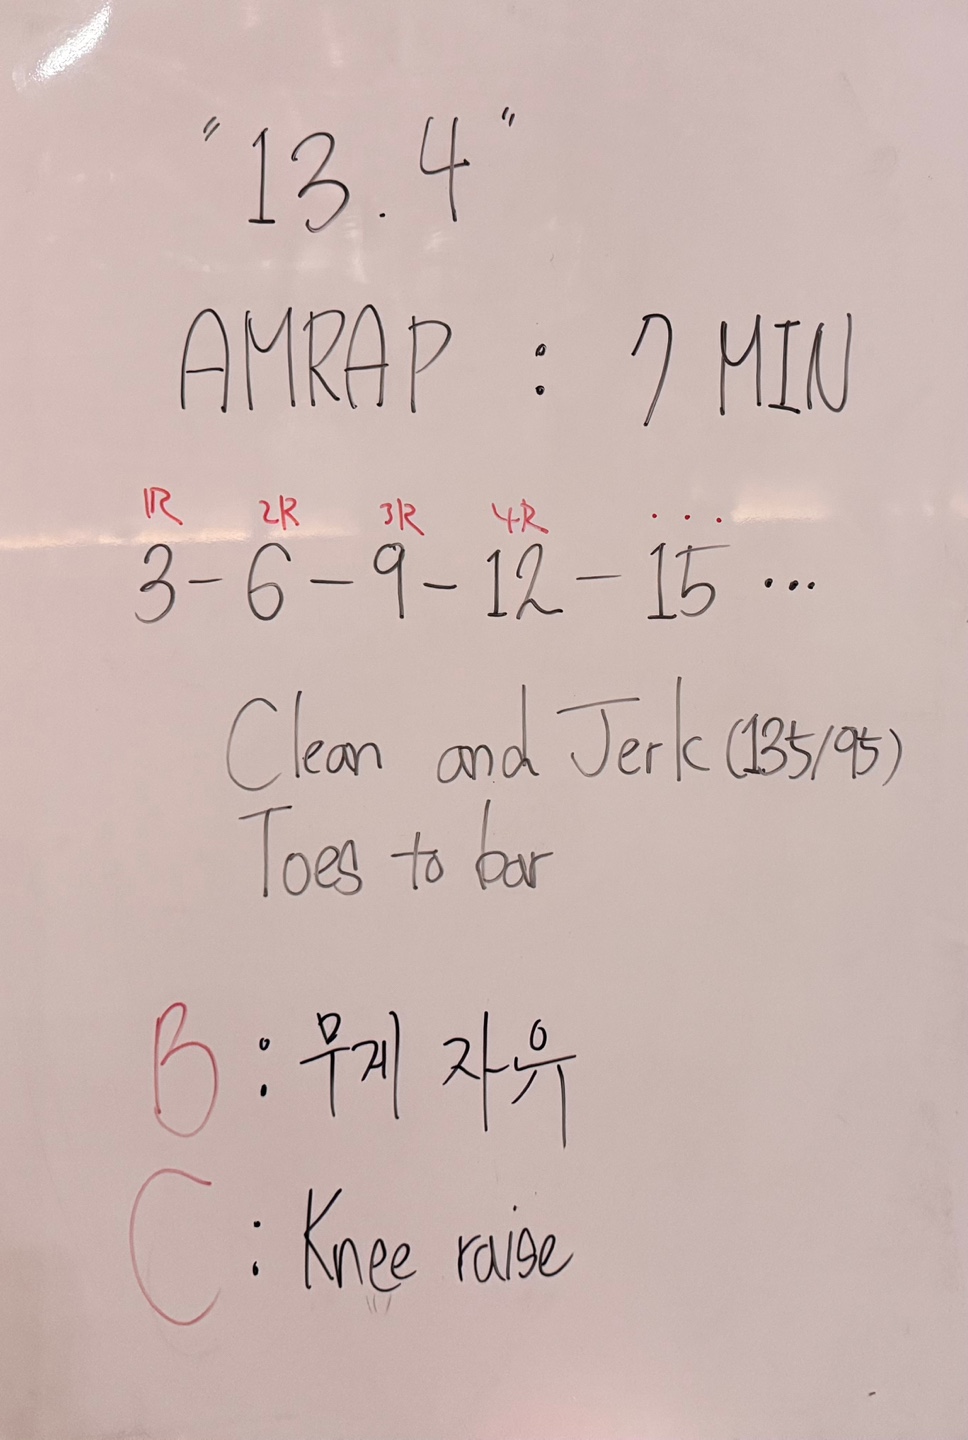 "13.4"
AMRAP : 7 MIN
1R 2R 3R 4R ...
3-6-9-12-15 ...
Clean and Jerk (135/95)
Toes to bar
B : 무게 자유
C : Knee raise